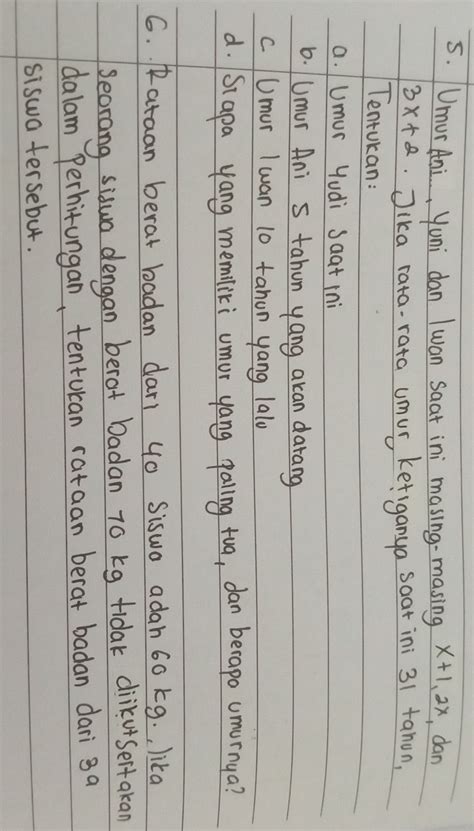 5. Umur Ani..., Yuni dan Iwan saat ini masing-masing x+1, 2x, dan
3x+2. Jika rata-rata umur ketiganya saat ini 31 tahun,
Tentukan:
a. Umur Yudi saat ini
b. Umur Ani 5 tahun yang akan datang
c Umur Iwan 10 tahun yang lalu
d. Siapa yang memiliki umur yang paling tua, dan berapa umurnya?
6. Rataan berat badan dari 40 siswa adah 60 kg. Jika
seorang siswa dengan berat badan 70 kg tidak diikutsertakan
dalam perhitungan, tentukan rataan berat badan dari 39
siswa tersebut.